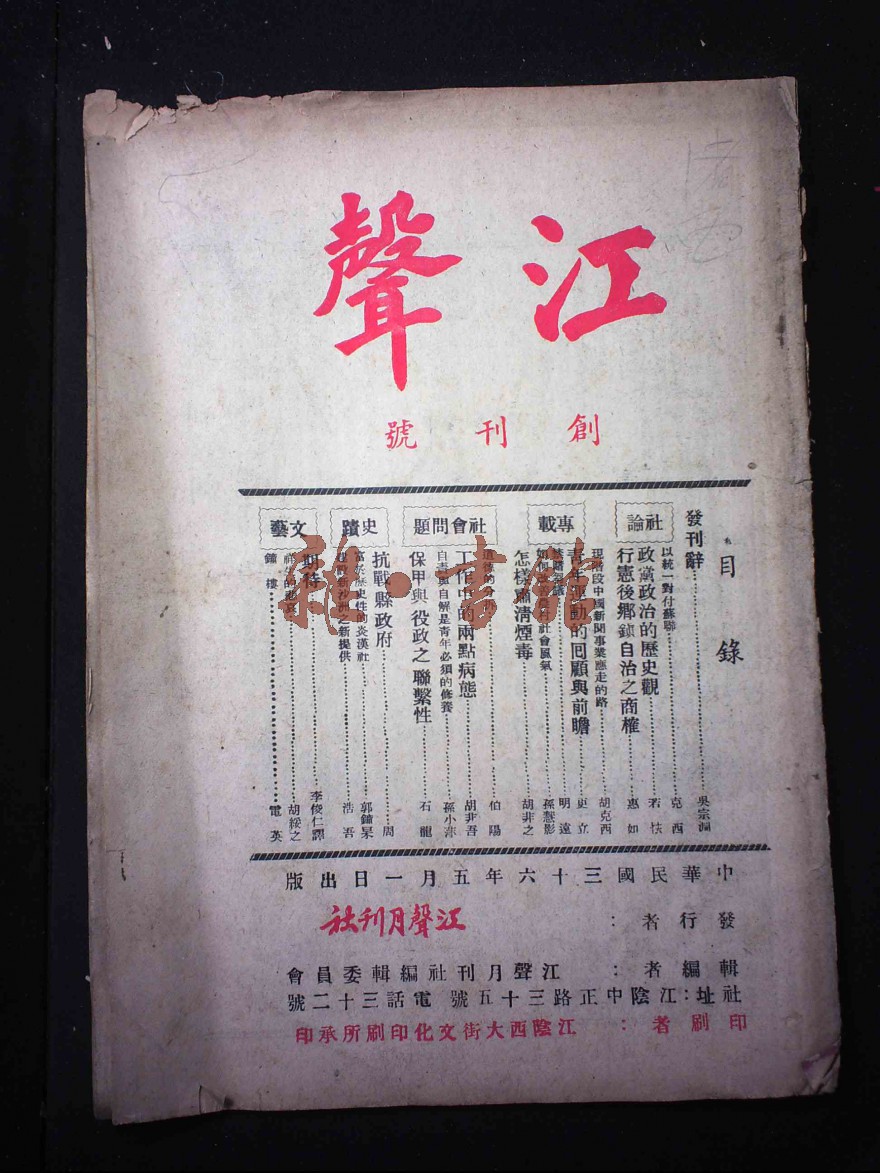 江聲
創刊號
目錄
發刊辭 吳宗淵
社論
以統一對付蘇聯 克西
政黨政治的歷史觀 若怯
行憲後鄉鎮自治之商榷 惠如
專載
現階段中國新聞事業應走的路 胡克西
青年運動的囘顧與前瞻 更立
明遠
社會風氣 孫慧影
怎樣肅清煙毒 胡非之
社會問題
伯陽
工作中的兩點病態 胡非吾
自責與自解是青年必須的修養 孫小非
保甲與役政之聯繫性 石龍
史蹟
抗戰縣政府 周
富於歷史性的炎漢社 郭鏽杲
沙洲之新提供 浩吾
文藝
期待 李俊仁譯
的悲哀 胡綏之
鐘樓 電英
中華民國三十六年五月一日出版
發行者：江聲月刊社
編輯者：江聲月刊社編輯委員會
社址：江陰中正路三十五號 電話三十二號
印刷者：江陰西大街文化印刷所承印
雜·書館